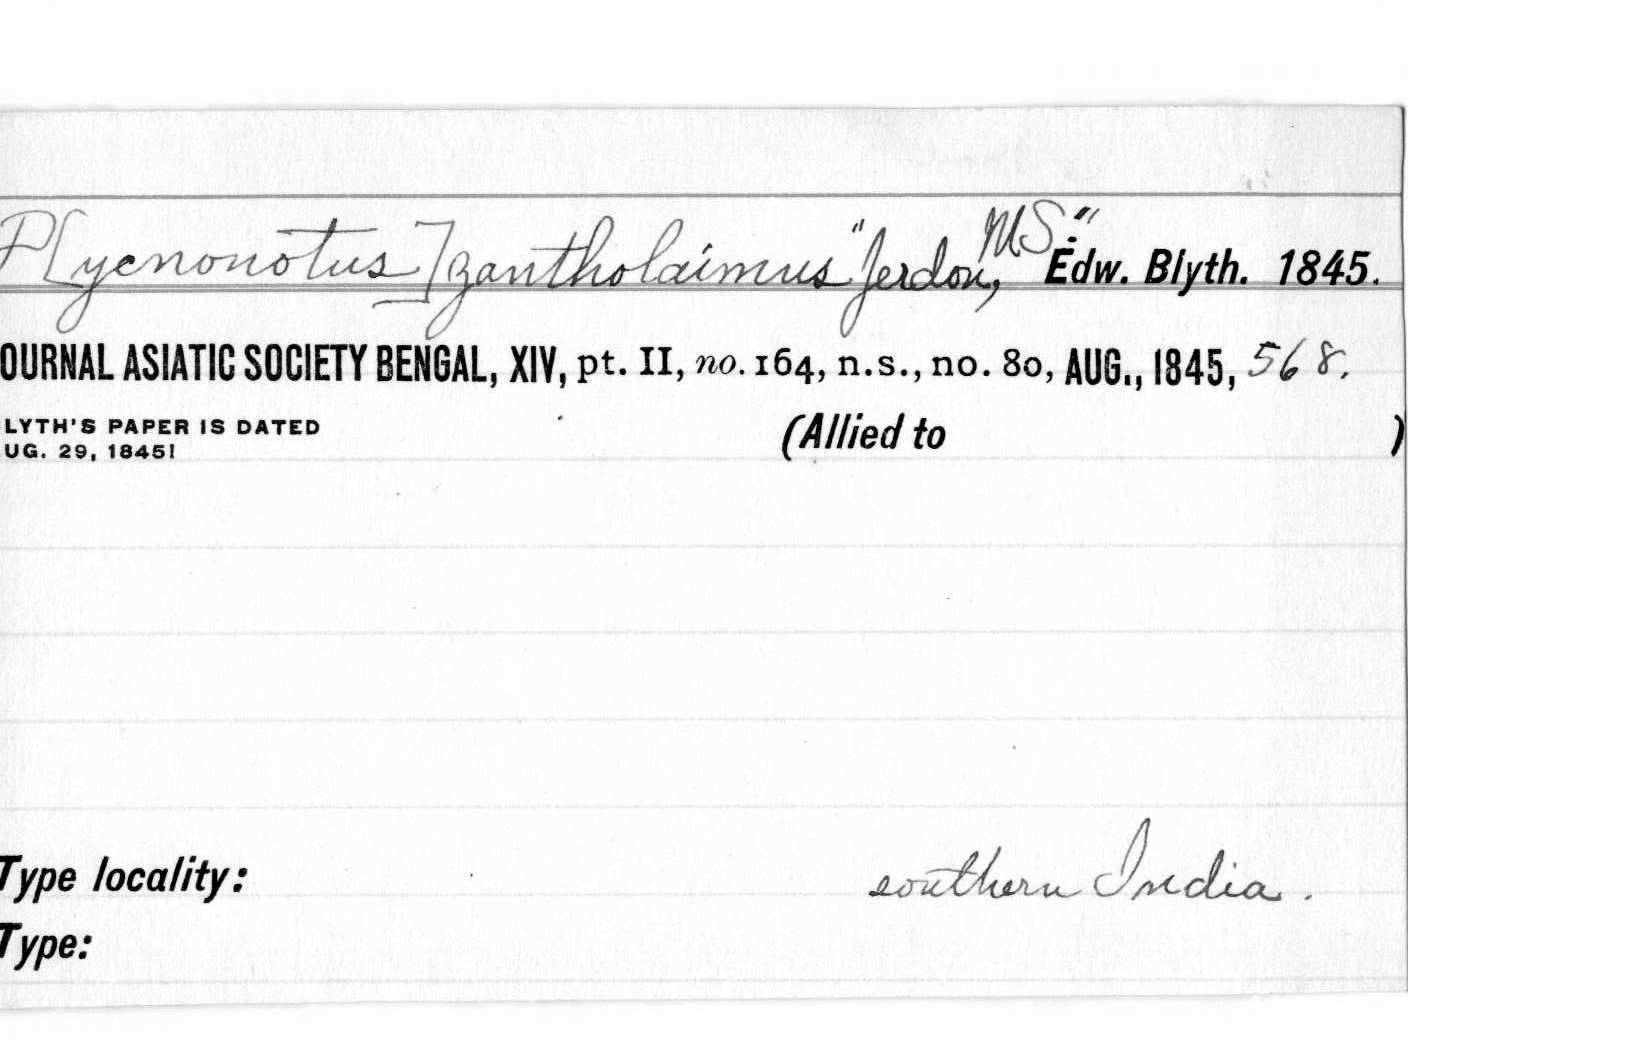 P[ycnonotus] zantholaimus "Jerdon, MS." Edw. Blyth. 1845.
OURNAL ASIATIC SOCIETY BENGAL, XIV, pt. II, no. 164, n.s., no. 80, AUG., 1845, 568.
LYTH'S PAPER IS DATED
UG. 29, 1845!
(Allied to )
Type locality: southern India.
Type: